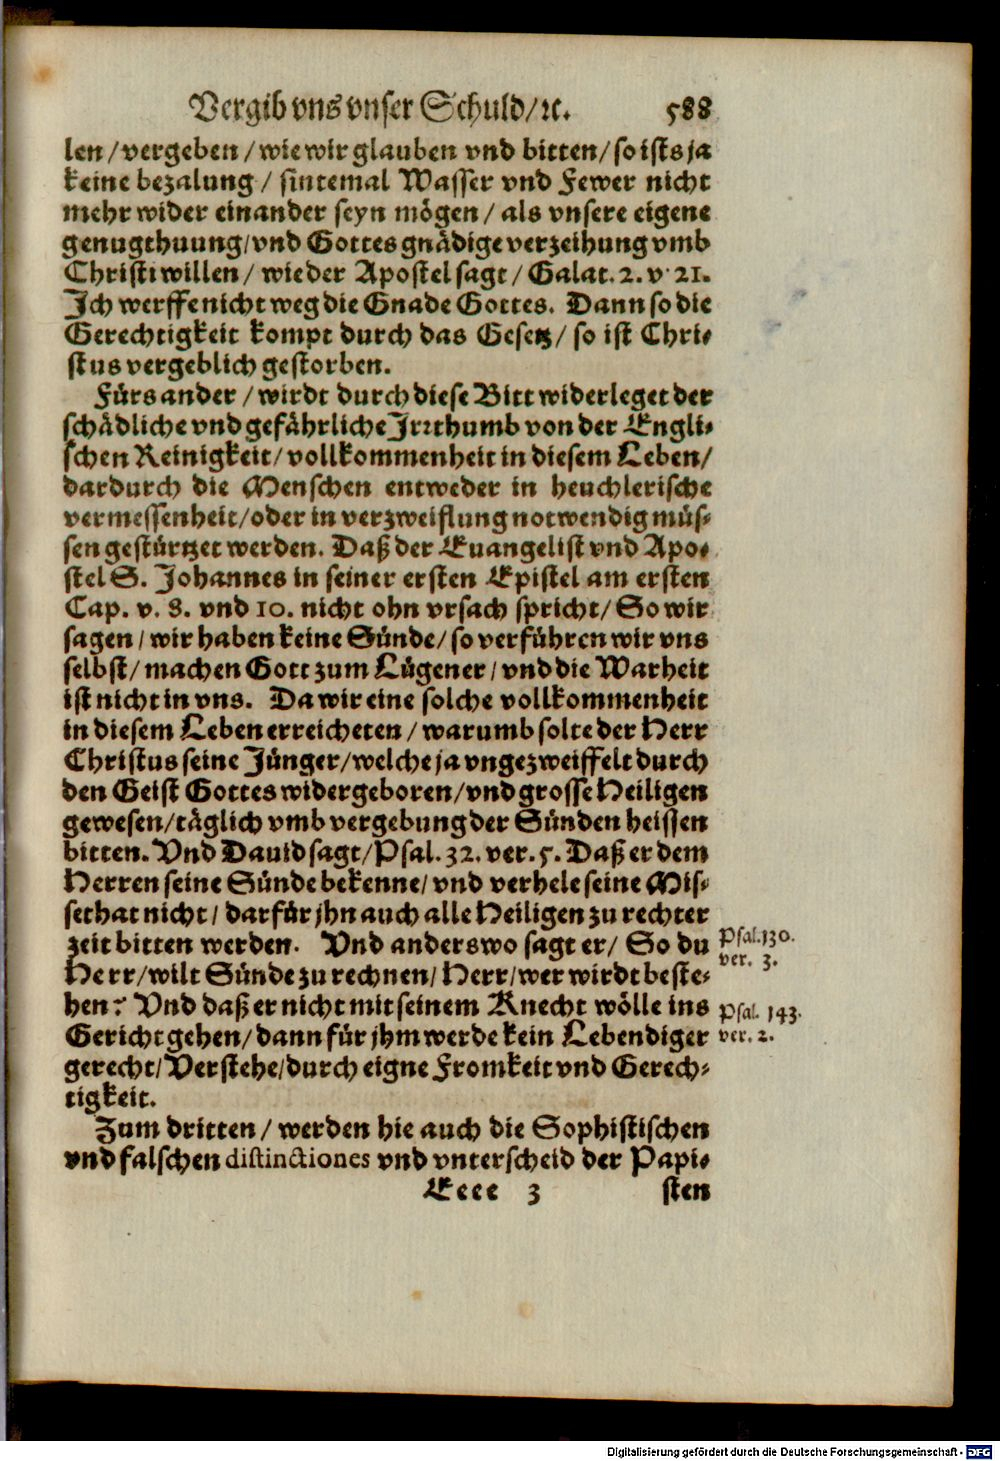 Vergib vns vnser Schuld/ꝛc. 588
len/vergeben/wie wir glauben vnd bitten/so ists ja
keine bezalung/ sintemal Wasser vnd Fewer nicht
mehr wider einander seyn mögen/ als vnsere eigene
genugthuung/vnd Gottes gnädige verzeihung vmb
Christi willen/ wie der Apostel sagt/ Galat. 2. v. 21.
Ich werffe nicht weg die Gnade Gottes. Dann so die
Gerechtigkeit kompt durch das Gesetz/ so ist Chri-
stus vergeblich gestorben.
Fürs ander/wirdt durch diese Bitt widerleget der
schädliche vnd gefährliche Irꝛthumb von der Engli-
schen Reinigkeit/vollkommenheit in diesem Leben/
dardurch die Menschen entweder in heuchlerische
vermessenheit/oder in verzweiflung notwendig müs-
sen gestürtzet werden. Daß der Euangelist vnd Apo-
stel S. Johannes in seiner ersten Epistel am ersten
Cap. v. 8. vnd 10. nicht ohn vrsach spricht/ So wir
sagen/ wir haben keine Sünde/so verführen wir vns
selbst/machen Gott zum Lügener/vnd die Warheit
ist nicht in vns. Da wir eine solche vollkommenheit
in diesem Leben erreicheten/warumb solte der Herr
Christus seine Jünger/welche ja vngezweiffelt durch
den Geist Gottes widergeboren/vnd grosse Heiligen
gewesen/täglich vmb vergebung der Sünden heissen
bitten. Vnd Dauid sagt/Psal. 32. ver. 5. Daß er dem
Herren seine Sünde bekenne/vnd verhele seine Mis-
sethat nicht/ darfür jhn auch alle Heiligen zu rechter
zeit bitten werden. Vnd anderswo sagt er/ So du
Herr/wilt Sünde zu rechnen/Herr/wer wirdt beste-
hen? Vnd daß er nicht mit seinem Knecht wölle ins
Gericht gehen/dann für jhm werde kein Lebendiger
gerecht/Verstehe/durch eigne Fromkeit vnd Gerech-
tigkeit.
Psal. 130.
ver. 3.
Psal. 143.
ver. 2.
Zum dritten/ werden hie auch die Sophistischen
vnd falschen distinctiones vnd vnterscheid der Papi-
Eeee 3 sten
Digitalisierung gefördert durch die Deutsche Forschungsgemeinschaft - DFG